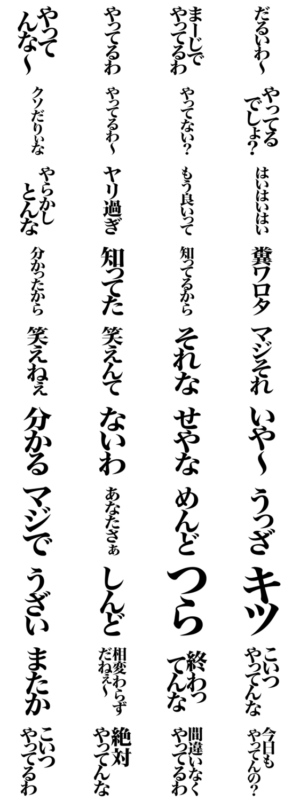 やって
んな〜
やってるわ
まーじで
やってるわ
だるいわ〜
クソだりぃな
やってるわ〜
やってない?
やってる
でしょ?
やらかし
とんな
ヤリ過ぎ
もう良いって
はいはいはい
分かったから
知ってた
知ってるから
糞ワロタ
笑えねぇ
笑えんて
それな
マジそれ
分かる
ないわ
せやな
いや〜
マジで
あなたさぁ
めんど
うっざ
うざい
しんど
つら
キツ
またか
相変わらず
だねぇ〜
終わっ
てんな
こいつ
やってんな
こいつ
やってるわ
絶対
やってんな
間違いなく
やってるわ
今日も
やってんの?